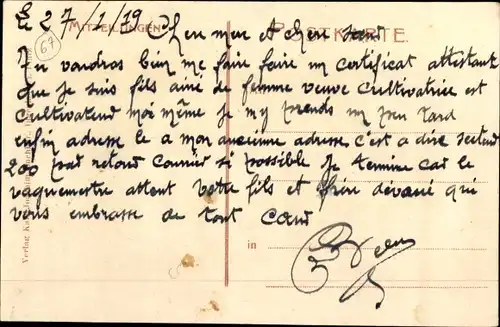 Le 27/1/19 Chere mere et chere sœur
MITTEILUNGEN POSTKARTE
67
Tu voudras bien me faire faire un certificat attestant
que je suis fils ainé de femme veuve cultivatrice et
cultivateur moi même je m'y prends un peu tard
enfin adresse le a mon ancienne adresse c'est a dire secteur
200 par retour courrier si possible Je termine car le
vaguemestre attent votre fils et frère dévoué qui
vous embrasse de tout cœur
in